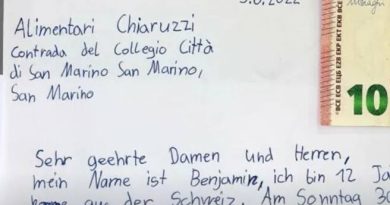 Alimentari Chiaruzzi
Contrada del Collegio Città
di San Marino San Marino,
San Marino
10
Sehr geehrte Damen und Herren,
mein Name ist Benjamin, ich bin 12
aus der Schweiz. Am Sonntag